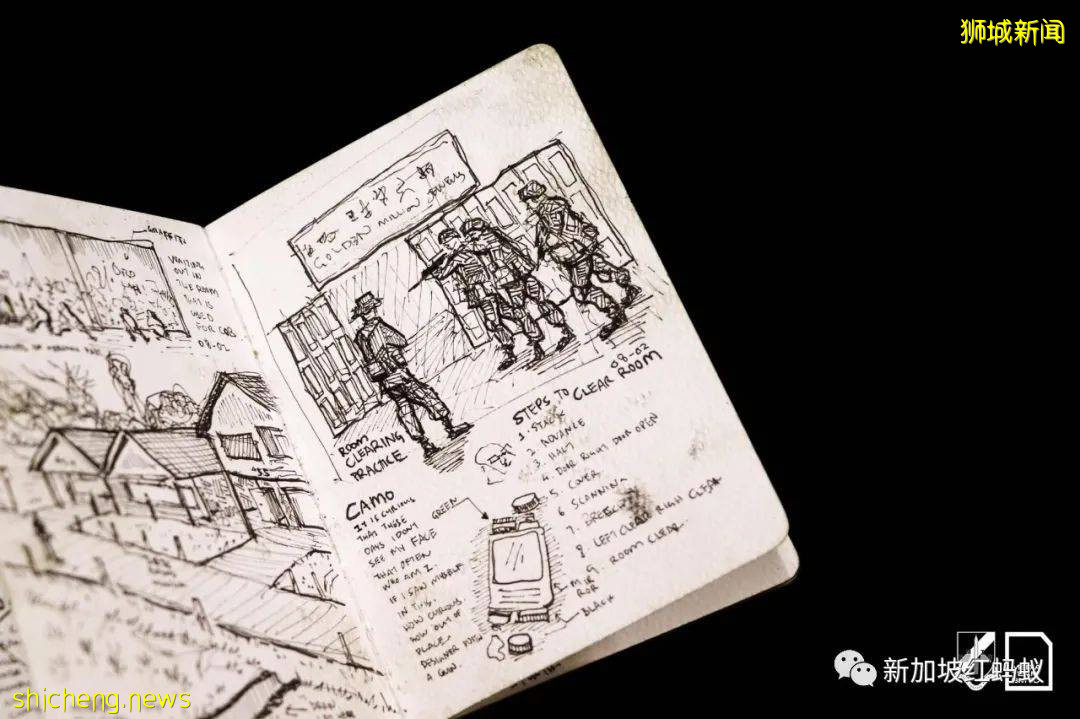 狮城新闻
GRAFFITI
WAITING
OUT IN
THE ROOM
THAT IS
USED
FOR CQB
08-02
GOLDEN MILLION JEWELS
08-02
ROOM
CLEARING
PRACTICE
STEPS TO CLEAR ROOM
1. STACK
2. ADVANCE
3. HALT
4. DOOR RIGHT DOOR OPEN
5. COVER
6 SCANNING
7.
8. LEFT CLEAR RIGHT CLEAR
9. ROOM CLEAR
CAMO
IT IS CURIOUS
THAT THESE
DAYS I DON'T
SEE MY FACE
THAT OFTEN
WHO AM I
IF I SAW MYSELF
IN THIS.
HOW CURIOUS
HOW OUT OF
PLACE
DESIGNER WITH
A GUN.
GREEN
MIR
ROR
BLACK
新加坡红蚂蚁
shicheng.news